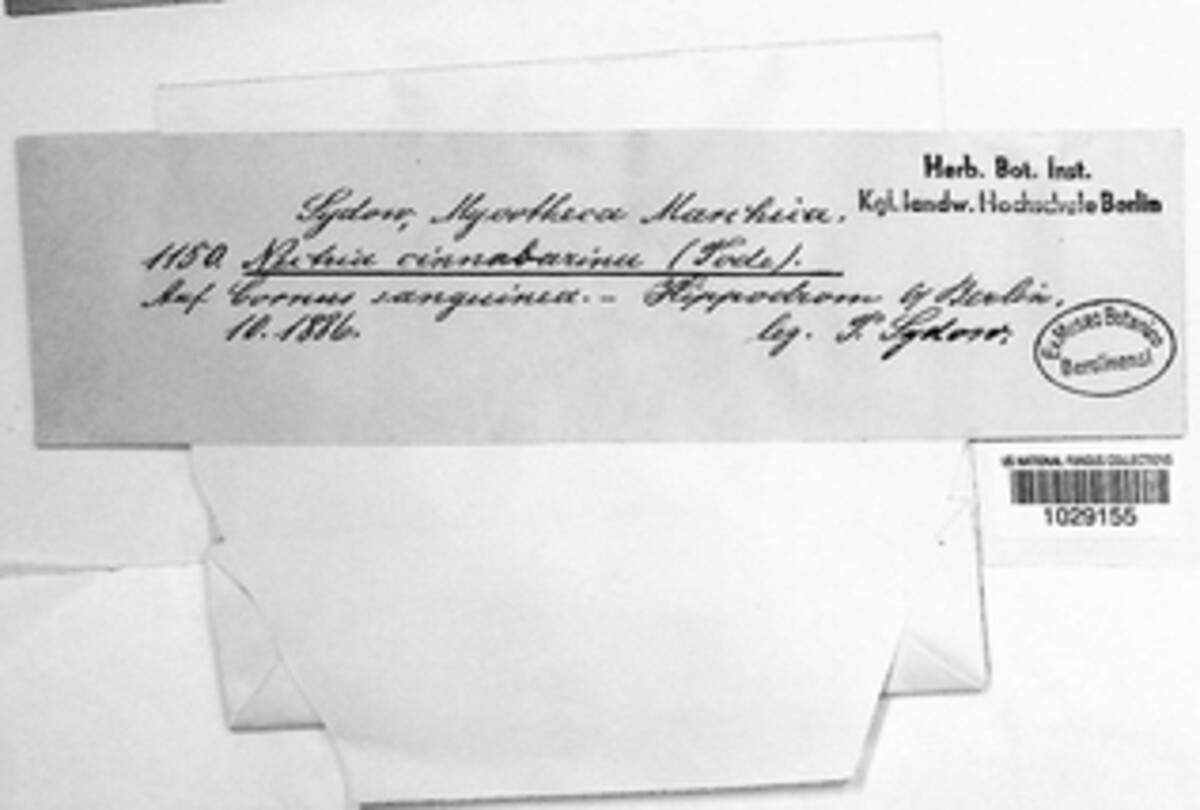 Herb. Bot. Inst.
Kgl. landw. Hochschule Berlin
Sydow, Mycotheca Marchica.
1150. Nectria cinnabarina (Tode).
Auf Cornus sanguinea. – Hippodrom b/ Berlin.
10. 1886. leg. P. Sydow.
Ex Museo Botanico
Berolinensi
US NATIONAL FUNGUS COLLECTIONS
1029155